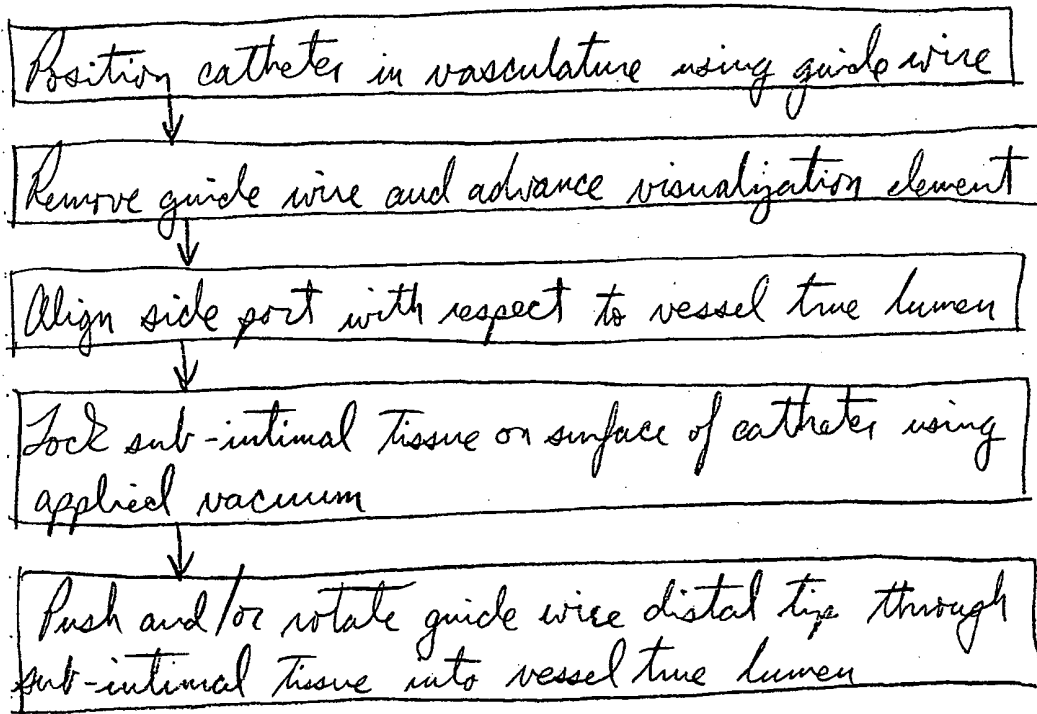 Position catheter in vasculature using guide wire
Remove guide wire and advance visualization element
Align side port with respect to vessel true lumen
Lock sub-intimal tissue on surface of catheter using
applied vacuum
Push and/or rotate guide wire distal tip through
sub-intimal tissue into vessel true lumen